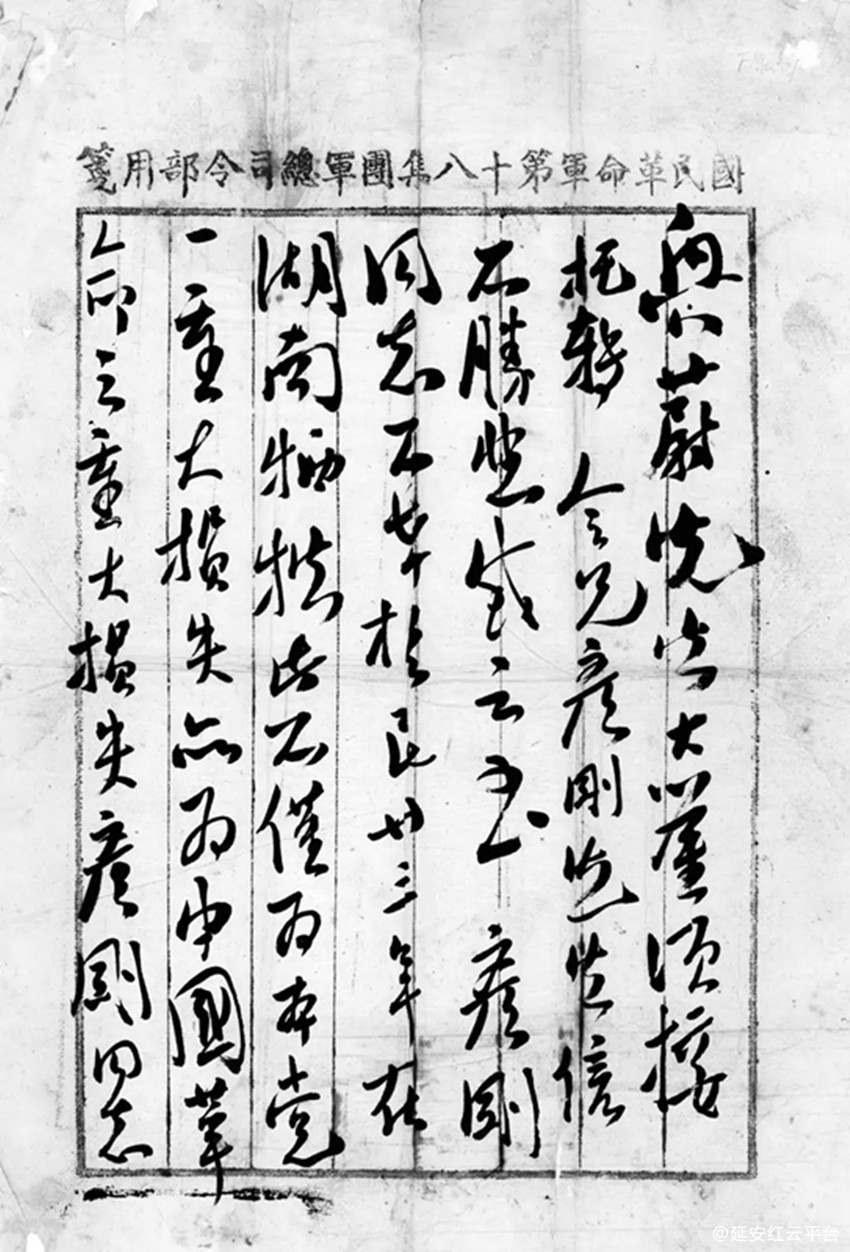 國民革命軍第十八集團軍總司令部用箋
蔚先生大鉴顷接
托转 令兄彦剛先生信
不勝悲感之至 彦剛
同志不幸於民廿三年在
湖南牺牲此不僅为本党
一重大損失亦为中國革
命之重大損失彦剛同志
@延安红云平台